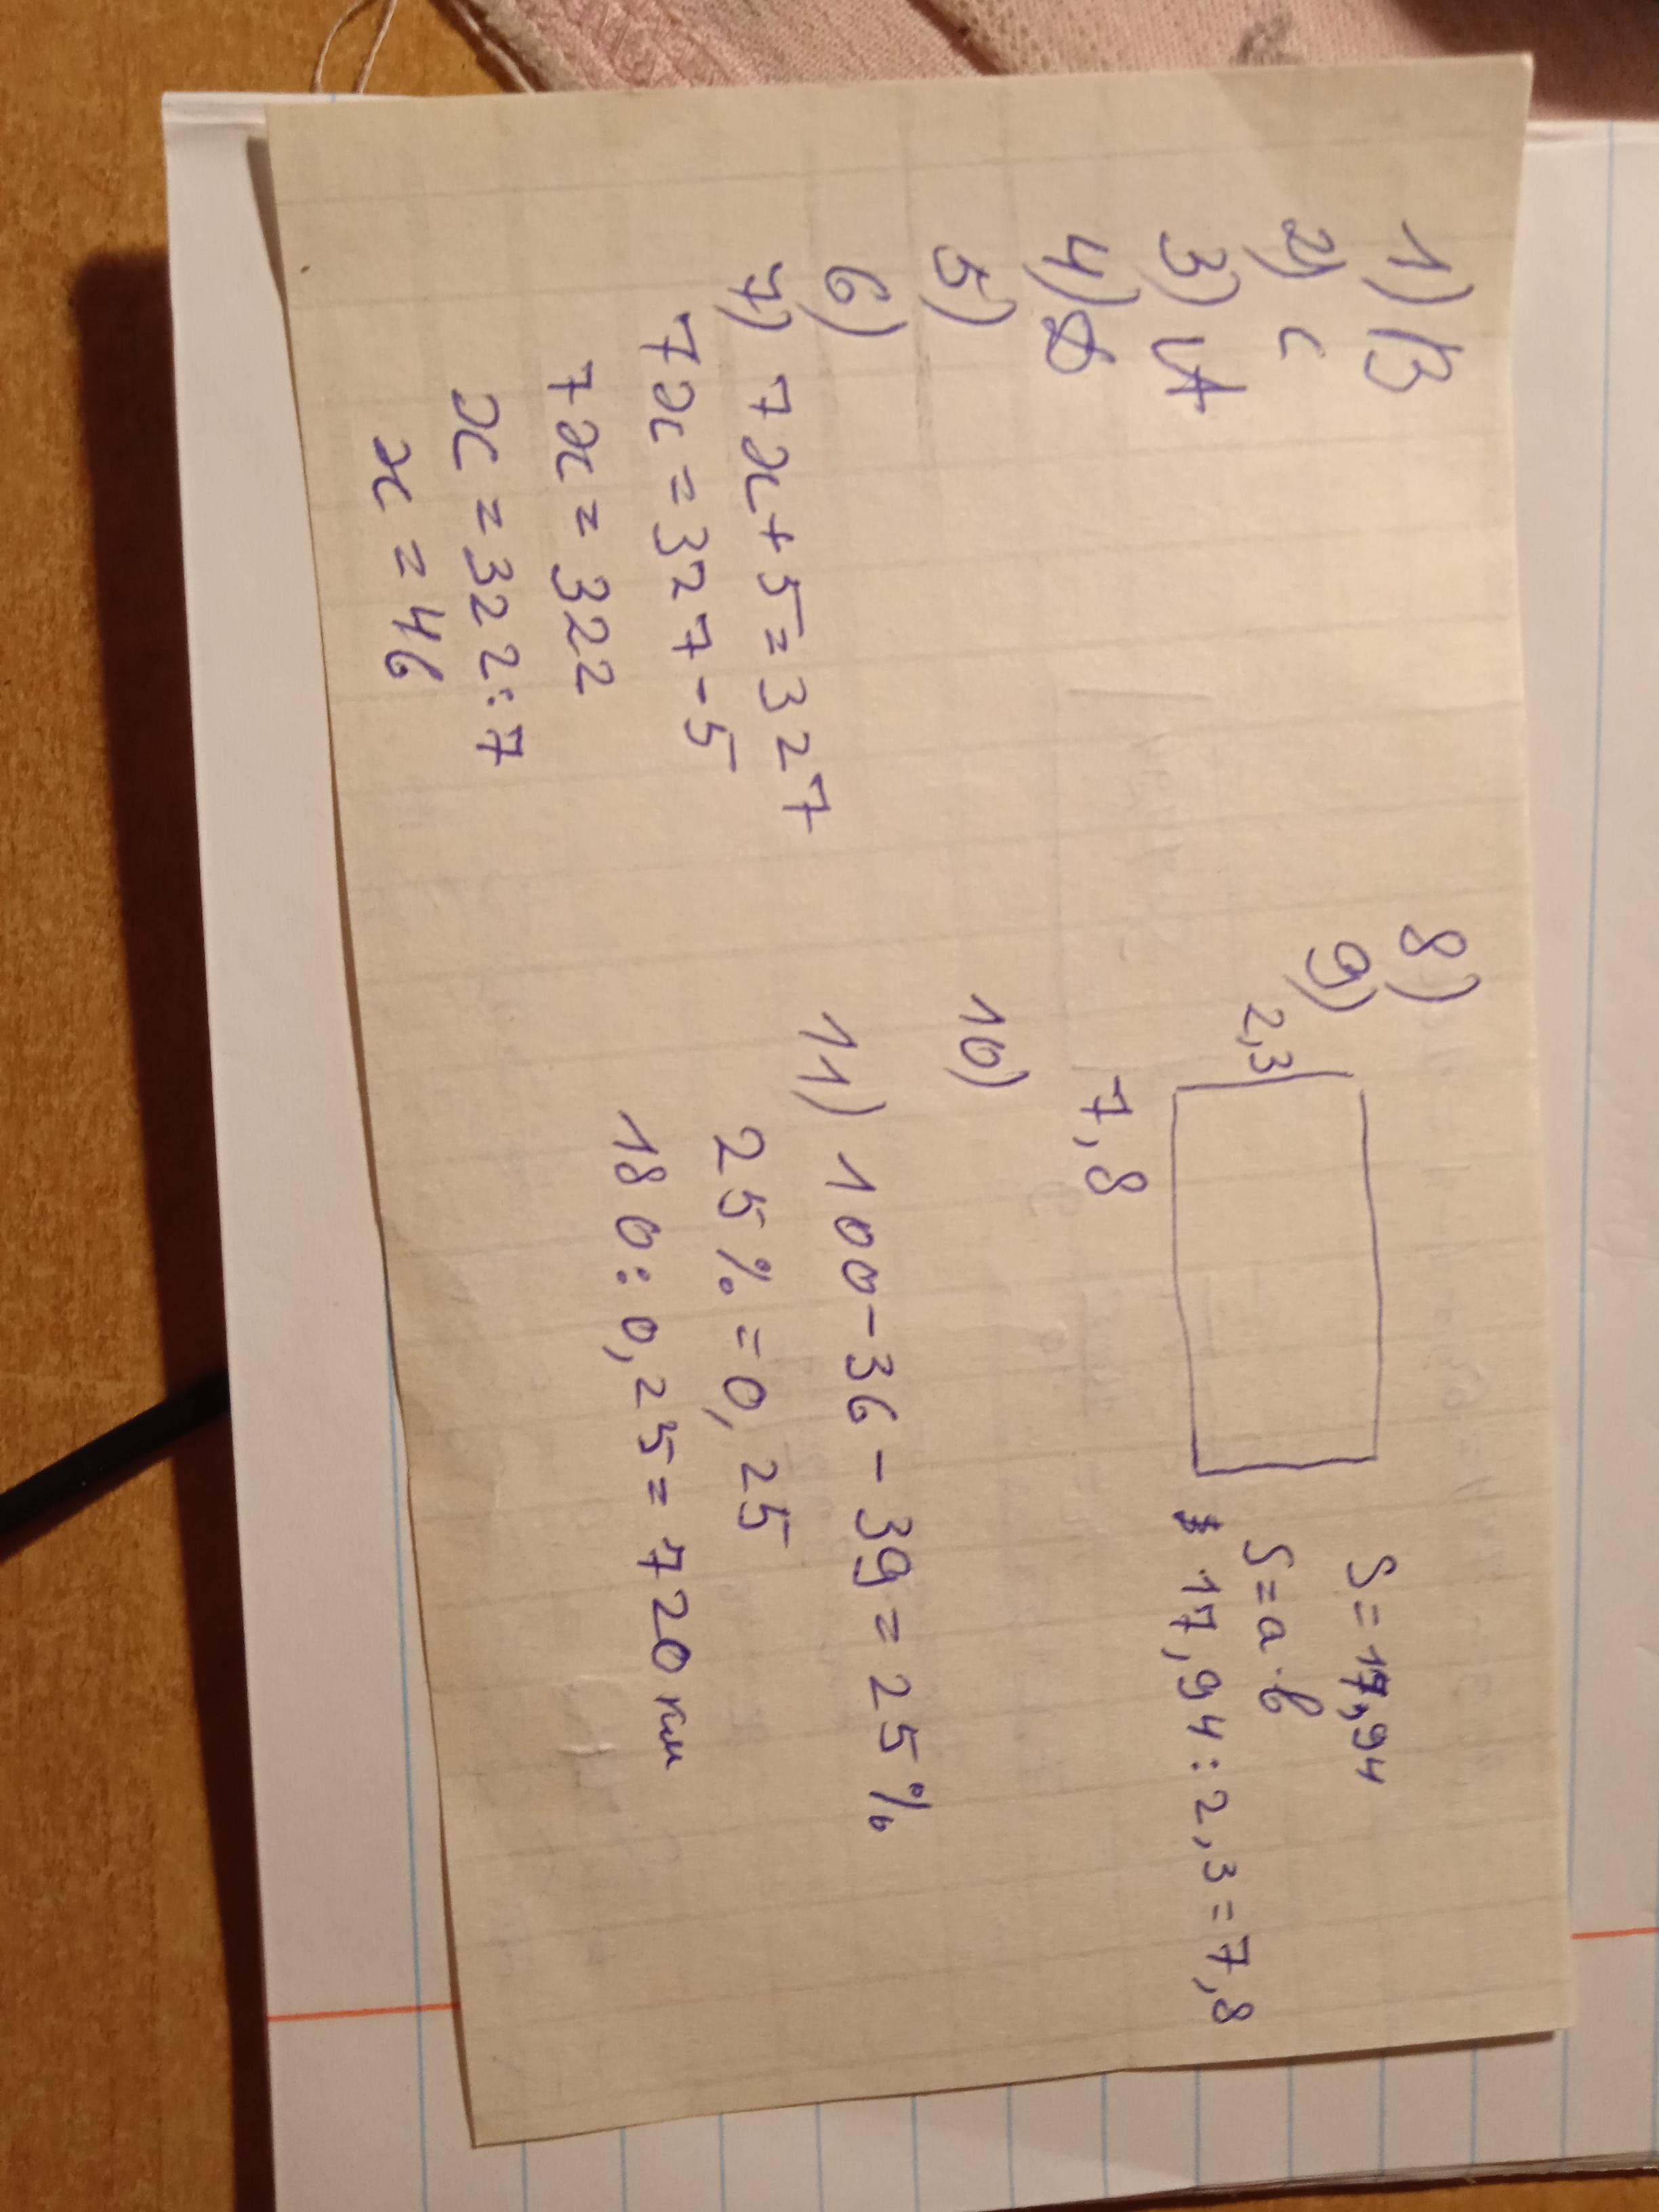 1) B
2) c
3) A
4)
5)
6)
7) 7x+5=327
7x=327-5
7x=322
x=322:7
x=46
8)
9)
2,3
7,8
S=17,94
S=a·b
17,94:2,3=7,8
10)
11) 100-36-39=25%
25%=0,25
180:0,25=720км